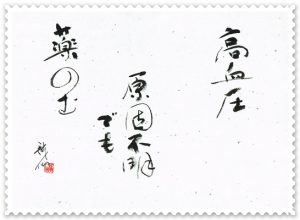 高血圧
原因不明
でも
薬のむ